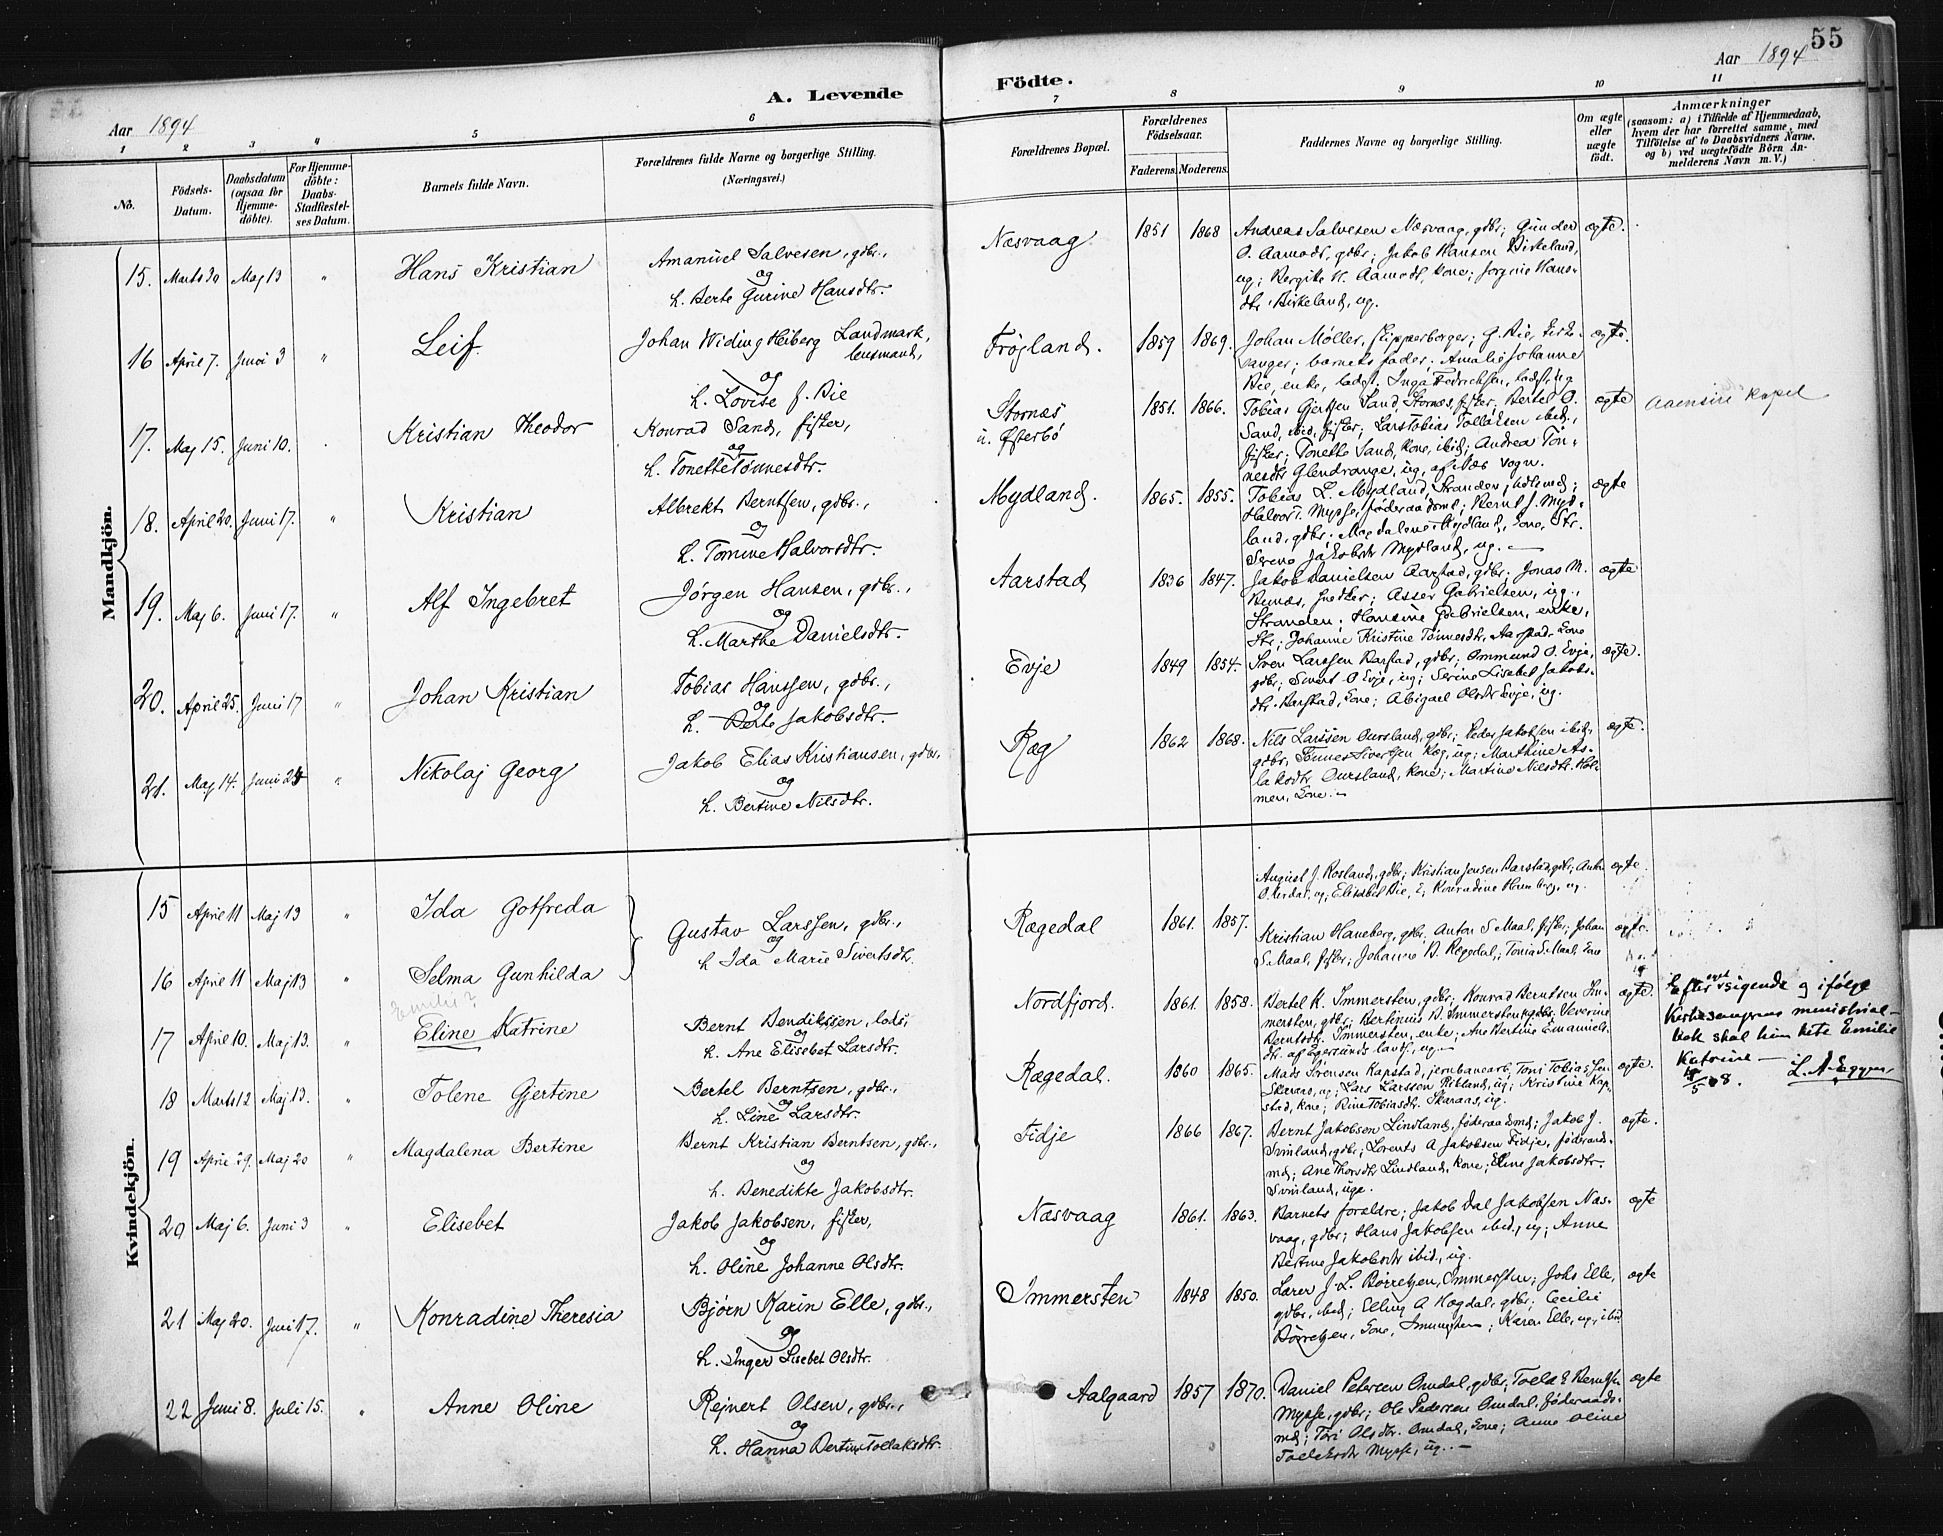 55
Aar 1894
A. Levende Födte.
Aar 1894
1 2 3 " 5 6 7 8 9 10 11
No.
Födsels-Datum.
Daabsdatum (ogsaa for Hjemmedöbte).
For Hjemmedöbte: Daabs-Stadfestelses Datum.
Barnets fulde Navn.
Forældrenes fulde Navne og borgerlige Stilling. (Næringsvei.)
Forældrenes Bopæl.
Forældrenes Födselsaar.
Faderens. Moderens.
Faddernes Navne og borgerlige Stilling.
Om ægte eller uægte födt.
Anmærkninger (saasom: a) i Tilfælde af Hjemmedaab, hvem der har forrettet samme, med Tilföielse af to Daabsvidners Navne, og b) ved uægtefödte Börn Anmelderens Navn m. V.)
Mandkjön.
15. Marts 30 Maj 13 " Hans Kristian
Amanuel Salvesen, gdbr.,
og
h. Berte Gurine Hansdtr.
Næsvaag 1851 1868
Andreas Salvesen Næsvaag, gdbr; Gunder
O. Aamodt, gdbr; Jakob Hansen Birkeland,
ug; Bergitte H. Aamodt, kone; Jorgine Hans-
dtr. Birkeland, ug.
ægte.
16 April 7. Juni 3 " Leif.
Johan Widing Heiberg Landmark,
lensmand,
og
h. Lovise f. Bie
Frøjland. 1859 1869.
Johan Møller, skipperborger; G. Bie,
barnets fader; Amalie Johanne
Bie, enke, ladest; Inga Fredrichsen, ladest, ug
ægte.
17. Maj 15. Juni 10. Kristian Theodor
Konrad Sand, fisker,
og
h. Tonette Tønnesdtr.
Stornæs
u. Østerbö
1851. 1866.
Tobias Gjertsen Sand, Stornæs, fisker; Bertel O.
Sand, ibid, fisker; Lars Tobias Tollaksen ibid,
fisker; Tonette Sand, kone, ibid; Andrea Tøn-
nesdtr Glendrange, ug, af Næs sogn.
ægte
Aaensire kapel
18. April 20. Juni 17. " Kristian
Albrekt Berntsen, gdbr.,
og
h. Tomine Halvorsdtr.
Mydland. 1865. 1855.
Tobias L. Mydland, Stranden,
Halvor T. Mysse, föderaadsmd; Bernt J. Myd-
land, gdbr; Magdalene Mydland, kone, Str.
Serine Jakobsdtr Mydland, ug.
ægte
19. Maj 6. Juni 17. " Alf Ingebret
Jørgen Hansen, gdbr.,
og
h. Marthe Danielsdtr.
Aarstad 1836 1847.
Jakob Danielsen Aarstad, gdbr; Jonas M.
Bunæs, snedker; Asser Gabrielsen, ug.,
Stranden; Hansine Gabrielsen, enke,
Str; Johanne Kristine Tønnesdtr, Aarstad, kone
ægte
20. April 25. Juni 17 " Johan Kristian
Tobias Hanssen, gdbr.,
og
h. Berte Jakobsdtr.
Evje 1849 1854.
Sven Larssen Barstad, gdbr; Ommund O. Evje,
gdbr; Sivert O Evje, ug; Serine Lisebet Jakobs-
dtr. Barstad, kone; Abigael Olsdtr Evje, ug.
ægte.
21. Maj 14. Juni 24 " Nikolaj Georg
Jakob Elias Kristiansen, gdbr.
og
h. Bertine Nilsdtr.
Ræg 1862 1868.
Nils Larssen Oursland, gdbr; Peder Jakobsen ibid,
gdbr; Tønnes Sivertsen Ræg, ug; Marthine As-
laksdtr Oursland, kone; Martine Nilsdtr. Hol-
men, kone.
ægte.
Kvindekjön.
15 April 11 Maj 13 " Ida Gotfreda
August J. Rosland, gdbr; Kristian Jensen Barstad, gdbr;
ug; Elisabet Bie, ; Konradine Humberg, ug.
ægte.
Gustav Larssen, gdbr.,
og
h Ida Marie Sivertsdtr.
Rægedal 1861. 1857.
16 April 11 Maj 13 " Selma Gunhilda
Kristian Haneberg, gdbr; Anton S Maal, fisker; Johan
S. Maal, fisker; Johanne B. Rægedal; Tonia S. Maal, kone
ægte.
Emilie?
17 April 10. Maj 13. " Eline Katrine
Bernt Bendikssen, lods,
og
h. Ane Elisebet Larsdtr.
Nordfjord. 1861. 1858.
Bertel K. Immersten, gdbr; Konrad Berntsen Im-
mersten, gdbr; Bertinius B. Immersten, gdbr; Severine
Berntsdtr. Immersten, enke; Ane Bertine Emanuels-
dtr. af Egersunds lands., ug.
ægte.
Efter sigende og ifølge
Kirkesangrens ministrial-
bok skal hun hete Emilie
Katrine —
18 Marts 12 Maj 13. " Tolene Gjertine
Bertel Berntsen, gdbr.,
og
h. Line Larsdtr.
Rægedal. 1860 1865.
Mads Sørensen Kapstad, jernbanearb; Toni Tobias Jen
Skaraas, ug; Lars Larssen Ribland, ug; Kristine Kap-
stad, kone; Rine Tobiasdtr. Skaraas, ug.
ægte.
19 April 29. Maj 20 " Magdalena Bertine
Bernt Kristian Berntsen, gdbr.,
og
h. Benedikte Jakobsdtr.
Fidje 1866 1867.
Bernt Jakobsen Lindland, föderaadsmd; Jakob J.
Svinland, gdbr; Lorents A Jakobsen Fidje, föderaads-
md; Ane Thorsdtr Lindland, kone; Eline Jakobsdtr.
Svinland, uge.
ægte.
20 Maj 6. Juni 3 " Elisebet
Jakob Jakobsen, fisker,
og
h. Oline Johanne Olsdtr.
Næsvaag 1861. 1863.
Barnets forældre; Jakob Dal Jakobsen Næs-
vaag, gdbr; Hans Jakobsen ibid, ug; Anne
Bertine Jakobsdtr ibid, ug.
ægte
21 Maj 20. Juni 17. " Konradine Theresia
Bjørn Karin Elle, gdbr.,
og
h. Inger Lisebet Olsdtr.
Immersten 1848 1850.
Lærer J. L. Börretzen, Immersten; Johs Elle,
gdbr, ibid; Elling A Hogdal, gdbr; Cecilie
Börretzen, kone, Immersten; Karen Elle, ug, ibid
ægte
22 Juni 8. Juli 15. " Anne Oline
Rejnert Olsen, gdbr.,
og
h. Hanna Bertine Tollaksdtr.
Aalgaard 1857 1870.
Daniel Petersen Omdal, gdbr; Tollak E Berntsen
Mysse, gdbr; Ole Pedersen Omdal, föderaads-
md; Tori Olsdtr. Omdal, kone; Anne Oline
Tollaksdtr Mysse, ug.
ægte